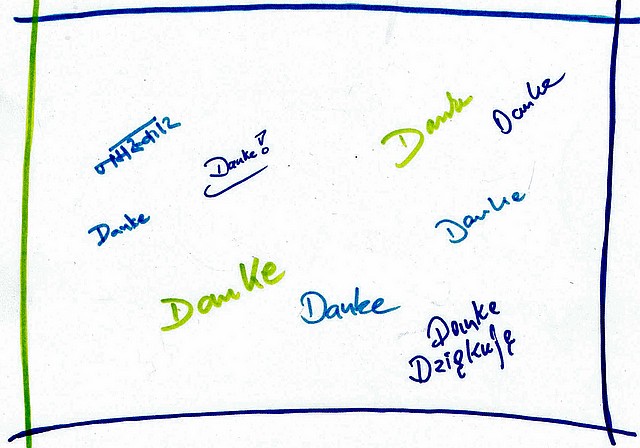 Danke
Danke
Danke!
Danke
Danke
Danke
Danke
Danke
Dziękuję